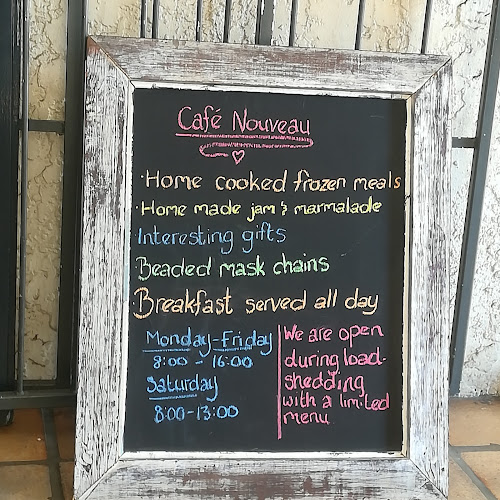 Café Nouveau
· Home cooked frozen meals
· Home made jam & marmalade
· Interesting gifts
Beaded mask chains
Breakfast served all day
Monday-Friday
8:00 - 16:00
Saturday
8:00-13:00
We are open
during load-
shedding
with a limited
menu.